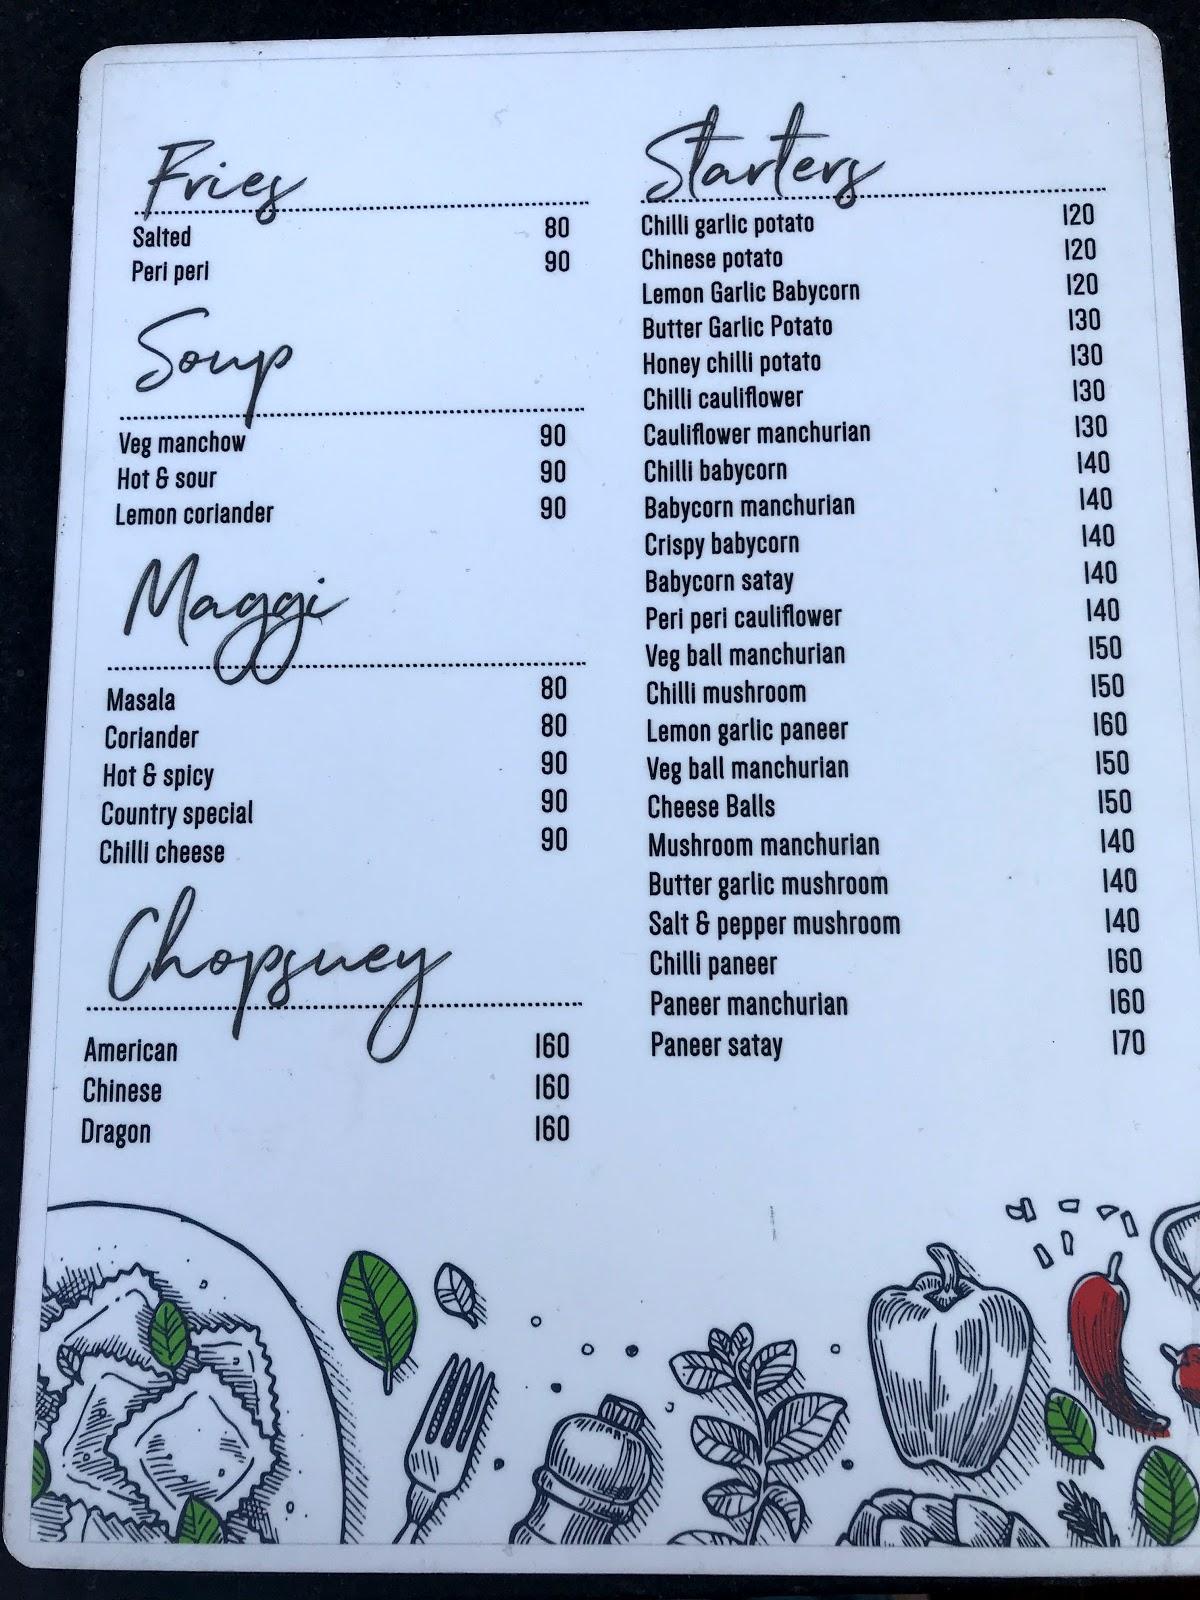 Fries
Salted 80
Peri peri 90
Soup
Veg manchow 90
Hot & sour 90
Lemon coriander 90
Maggi
Masala 80
Coriander 80
Hot & spicy 90
Country special 90
Chilli cheese 90
Chopsuey
American 160
Chinese 160
Dragon 160
Starters
Chilli garlic potato 120
Chinese potato 120
Lemon Garlic Babycorn 120
Butter Garlic Potato 130
Honey chilli potato 130
Chilli cauliflower 130
Cauliflower manchurian 130
Chilli babycorn 140
Babycorn manchurian 140
Crispy babycorn 140
Babycorn satay 140
Peri peri cauliflower 140
Veg ball manchurian 150
Chilli mushroom 150
Lemon garlic paneer 160
Veg ball manchurian 150
Cheese Balls 150
Mushroom manchurian 140
Butter garlic mushroom 140
Salt & pepper mushroom 140
Chilli paneer 160
Paneer manchurian 160
Paneer satay 170